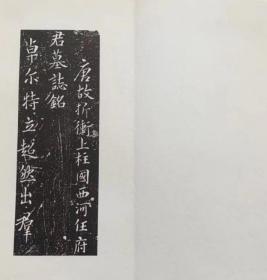 唐故折衝上柱國西河任府
君墓誌銘
卓尔特立超然出羣